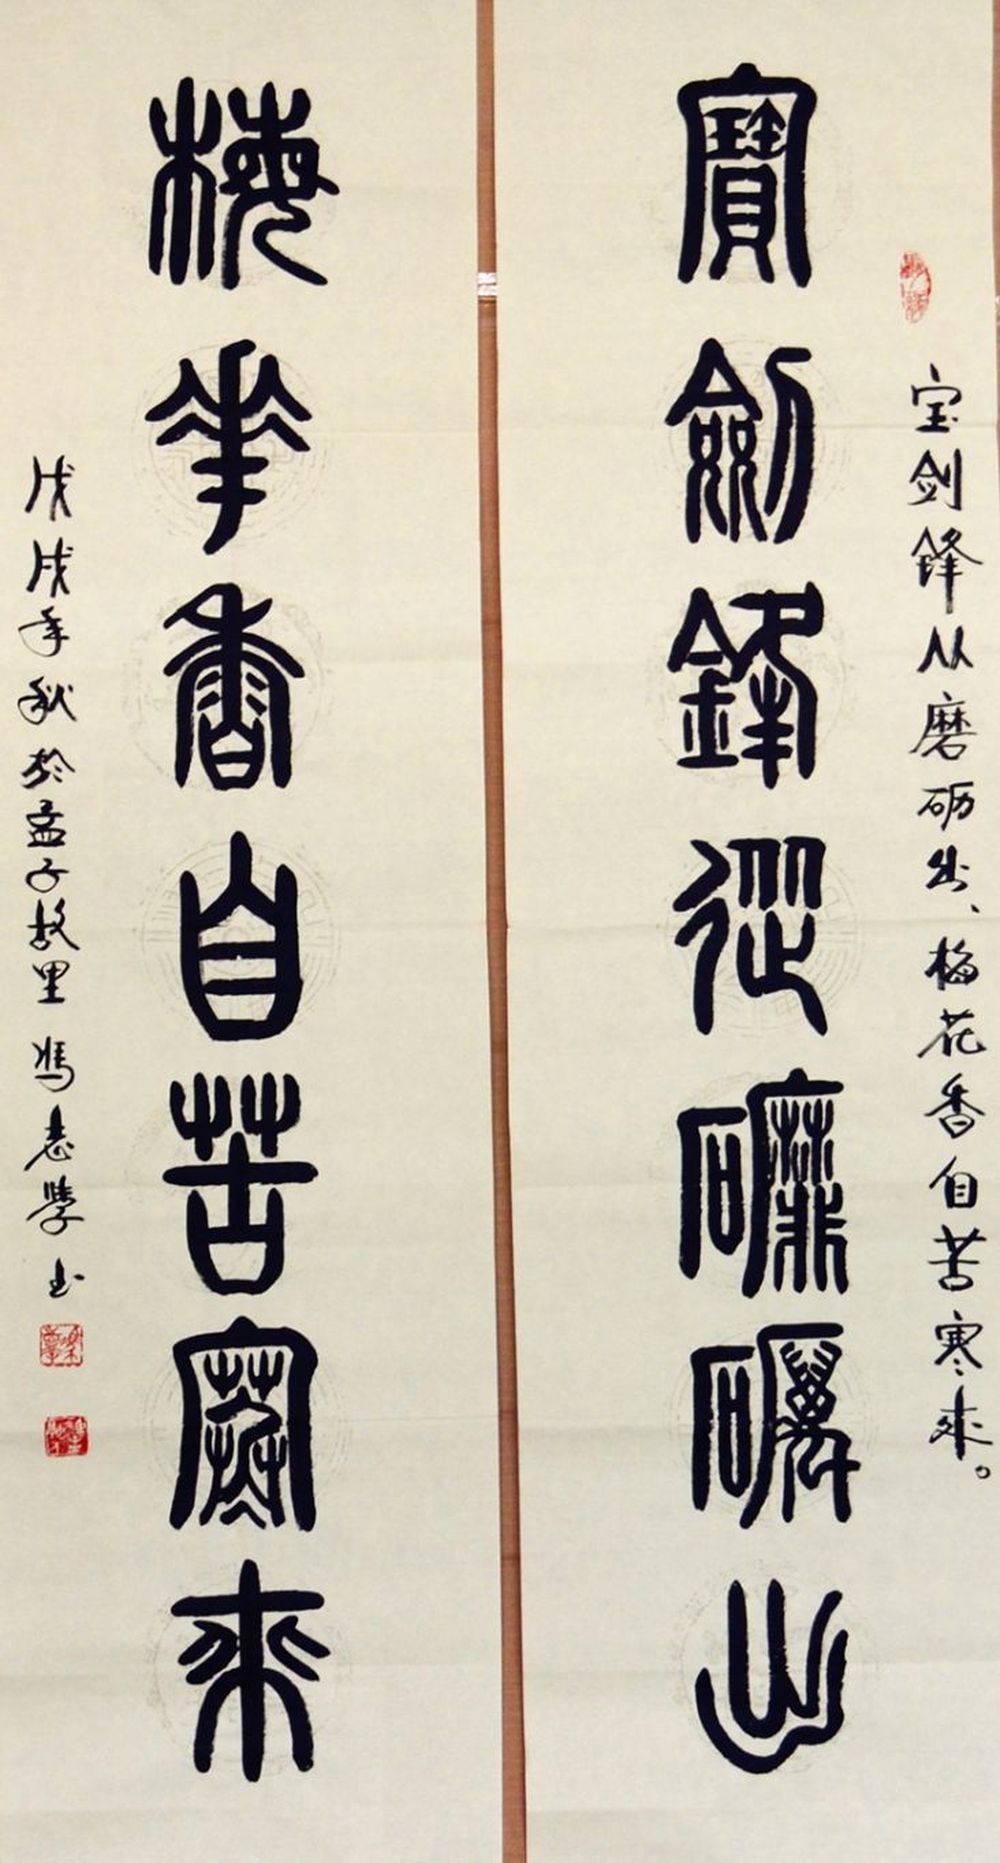 宝剑锋从磨砺出、梅花香自苦寒来。
寶劍鋒從礦礪出
梅華香自苦寒來
戊戌年秋於孟子故里馮志學书